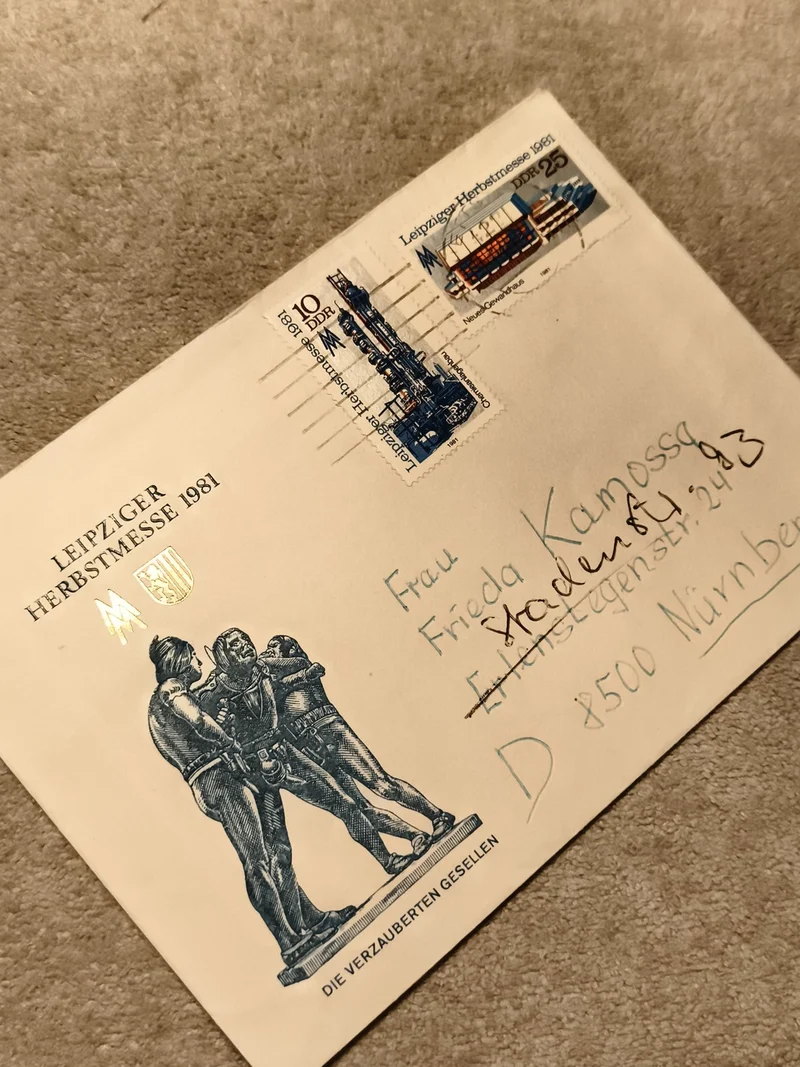 Leipziger Herbstmesse 1981
DDR 25
Neues Gewandhaus
1981
10
DDR
Leipziger Herbstmesse 1981
Chemieanlagenbau
1981
LEIPZIGER
HERBSTMESSE 1981
Frau
Frieda Kamossa
Stadenstr. 93
Erlenstegenstr. 24
D 8500 Nürnber
DIE VERZAUBERTEN GESELLEN